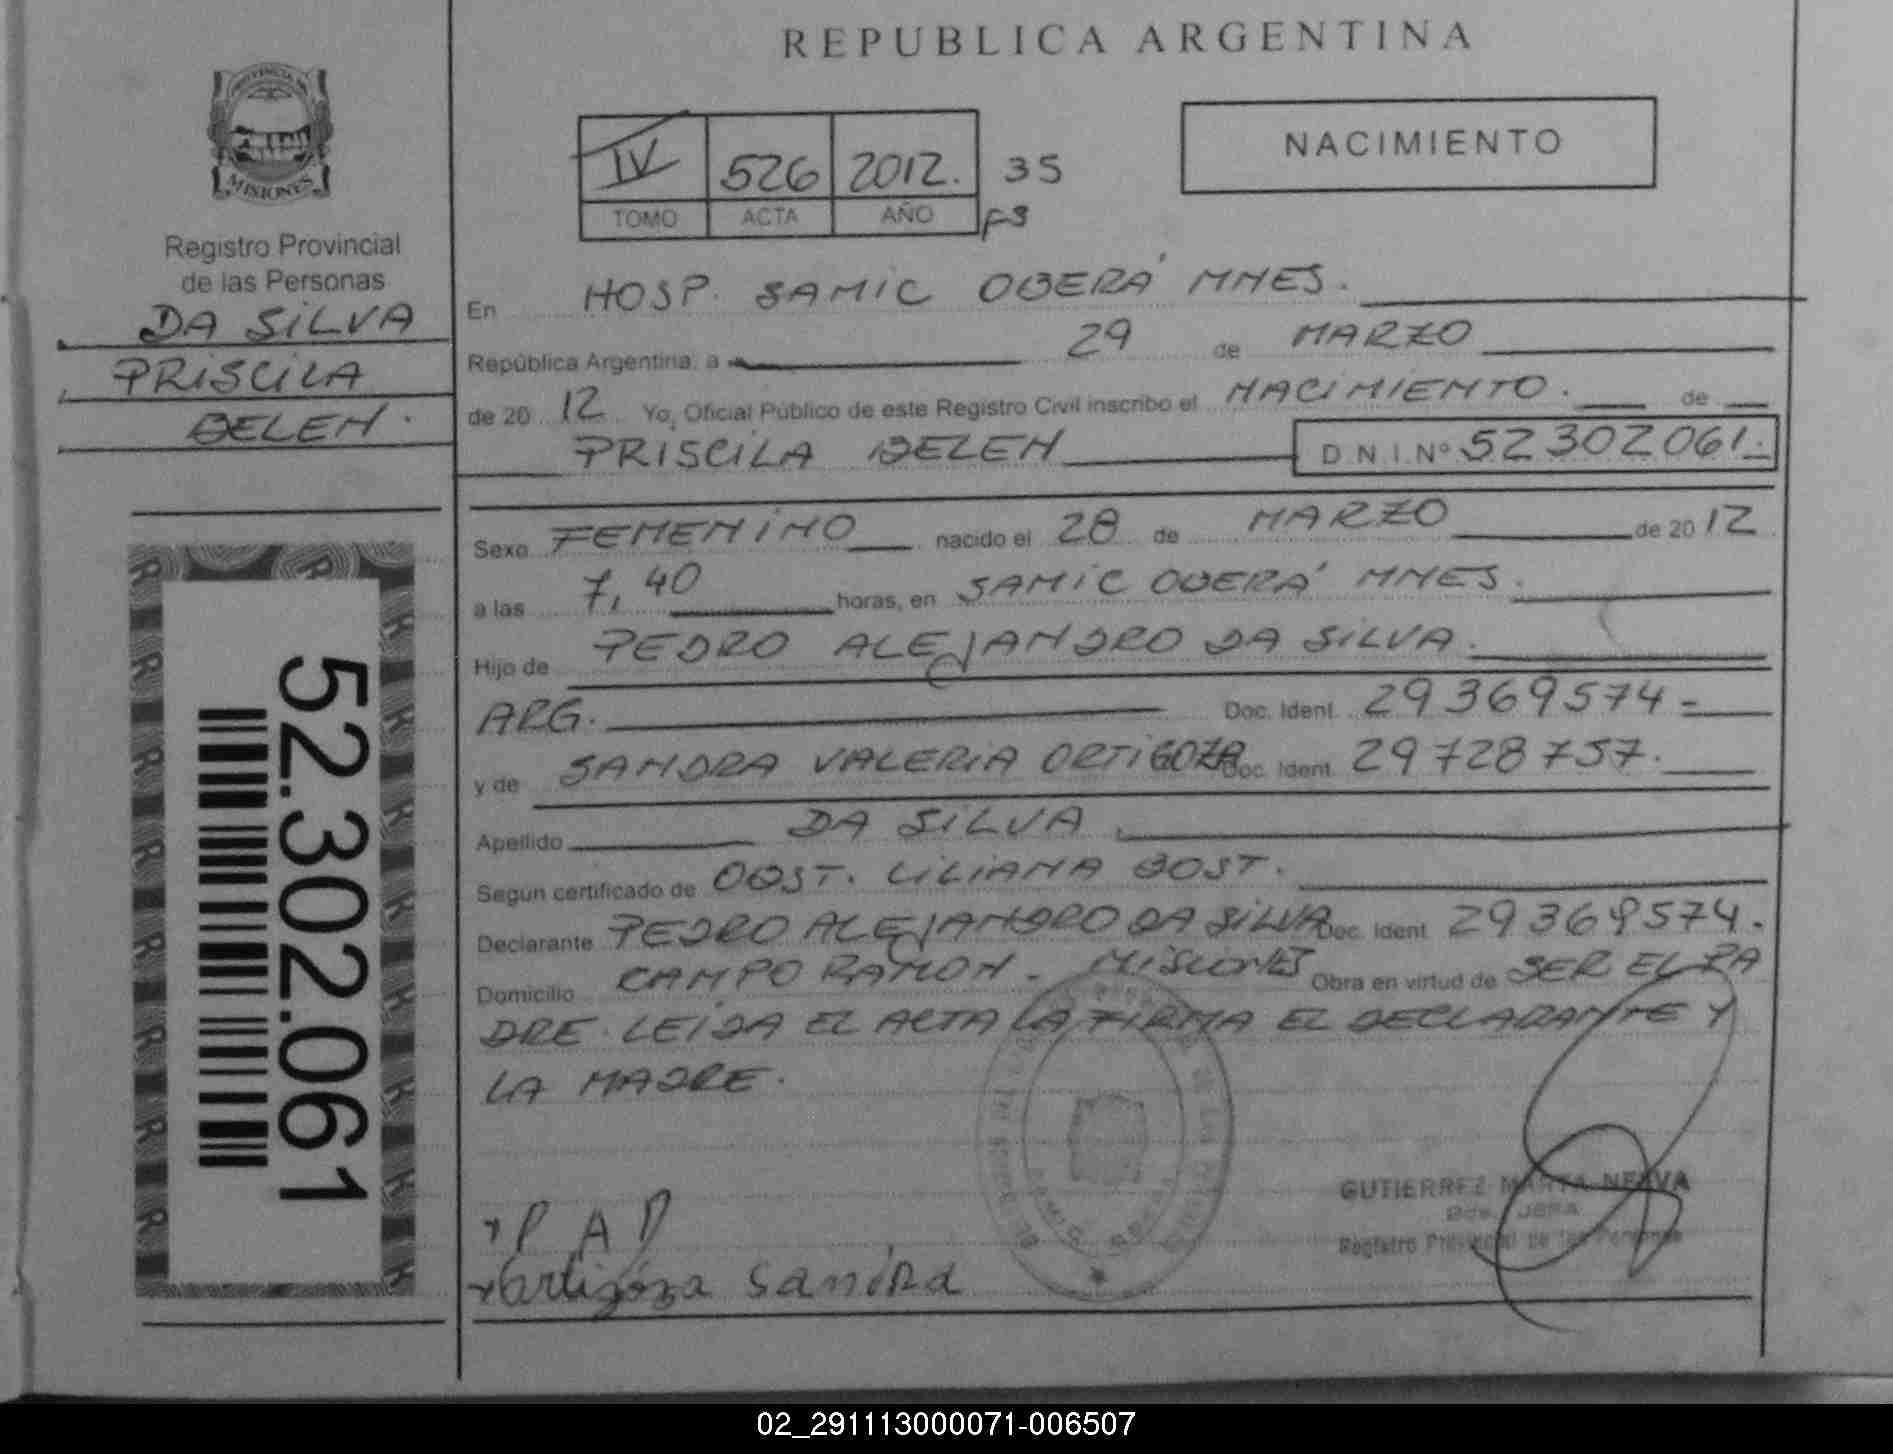 REPUBLICA ARGENTINA
MISIONES
Registro Provincial
de las Personas
DA SILVA
PRISCILA
BELEN.
52.302.061
IV 526 2012. 35
TOMO ACTA AÑO
NACIMIENTO
En HOSP. SAMIC OBERÁ MNES.
República Argentina, a 29 de MARZO
de 20 12 Yo, Oficial Público de este Registro Civil inscribo el NACIMIENTO. de
PRISCILA BELEN D.N.I.Nº 52302061.
Sexo FEMENINO nacido el 28 de MARZO de 20 12
a las 7,40 horas, en SAMIC OBERÁ MNES.
Hijo de PEDRO ALEJANDRO DA SILVA.
ARG. Doc. Ident. 29369574-
y de SANDRA VALERIA ORTIGOZA Doc. Ident. 29728757.
Apellido DA SILVA
Segun certificado de OBST. LILIANA BOST.
Declarante PEDRO ALEJANDRO DA SILVA Doc. Ident 29369574.
Domicilio CAMPO RAMON. MISIONES Obra en virtud de SER EL PA
DRE. LEIDA EL ACTA LA FIRMA EL DECLARANTE Y
LA MADRE.
GUTIERREZ MARTA
Registro Provincial de las Personas
P A D
ortigoza Sandra
02_291113000071-006507